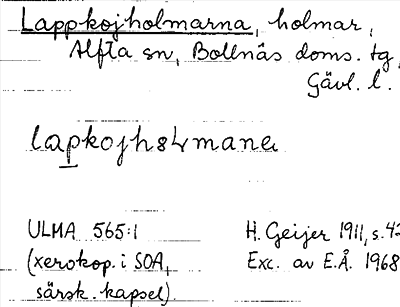 Lappkojholmarna, holmar,
Alfta sn, Bollnäs doms. tg,
Gävl. l.
ULMA 565:1
(xerokop. i SOA,
särsk. kapsel)
H. Geijer 1911, s. 42
Exc. av E.Å. 1968